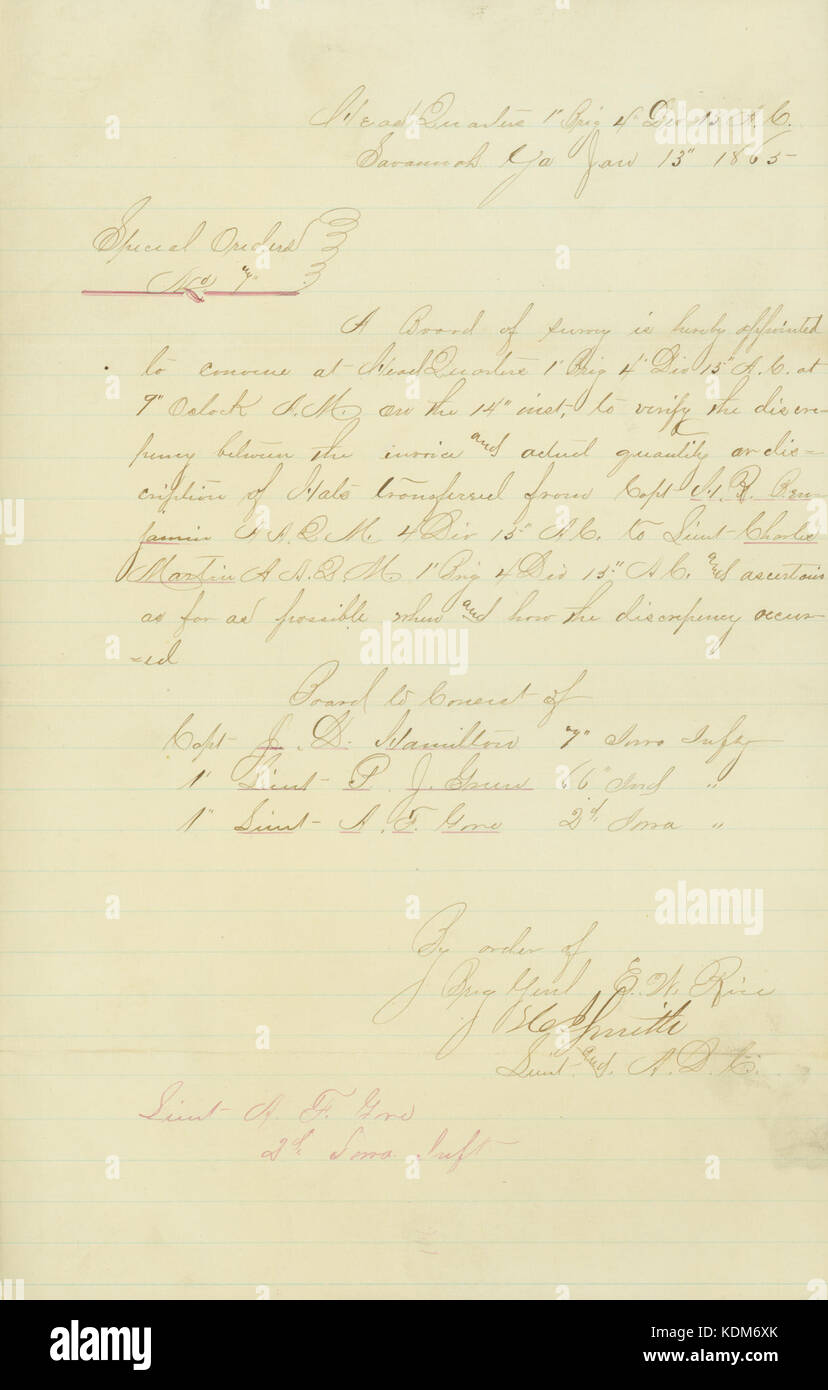 Head Quarters 1" Brig 4" Div 15 A.C.
Savannah Ga Jan 13" 1865
Special Orders
No "7"
A Board of survey is hereby appointed
to convene at Head Quarters 1" Brig 4" Div 15" A.C. at
9" Oclock A.M. on the 14" inst, to verify the discre-
pency between the invoice and actual quantity or dis=
cription of Hats transferred from Capt H. R. Ben-
jamin A.A.Q.M. 4 Div 15" A.C. to Lieut Charles
Martin A A.Q.M 1" Brig 4 Div 15" A.C. and ascertain
as far as possible when and how the discrepency occur-
=ed
Board to Consist of
Capt J. D. Hamilton 7" Iowa Infty
1" Lieut P. J. Green 66" Ind "
1" Lieut A. F. Gove 2d Iowa "
By order of
Brig Genl E. W. Rice
Smith
Lieut and A.D.C.
Lieut A. F. Gove
2d Iowa Inft
alamy
alamy
alamy
alamy
alamy
alamy
Image ID: KDM6XK
www.alamy.com